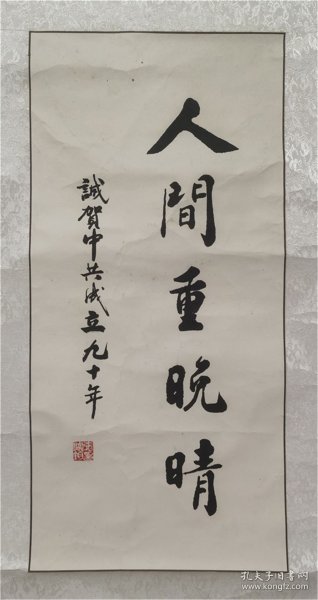 人間重晚晴
誠賀中共成立九十年
孔夫子旧书网
www.kongfz.com